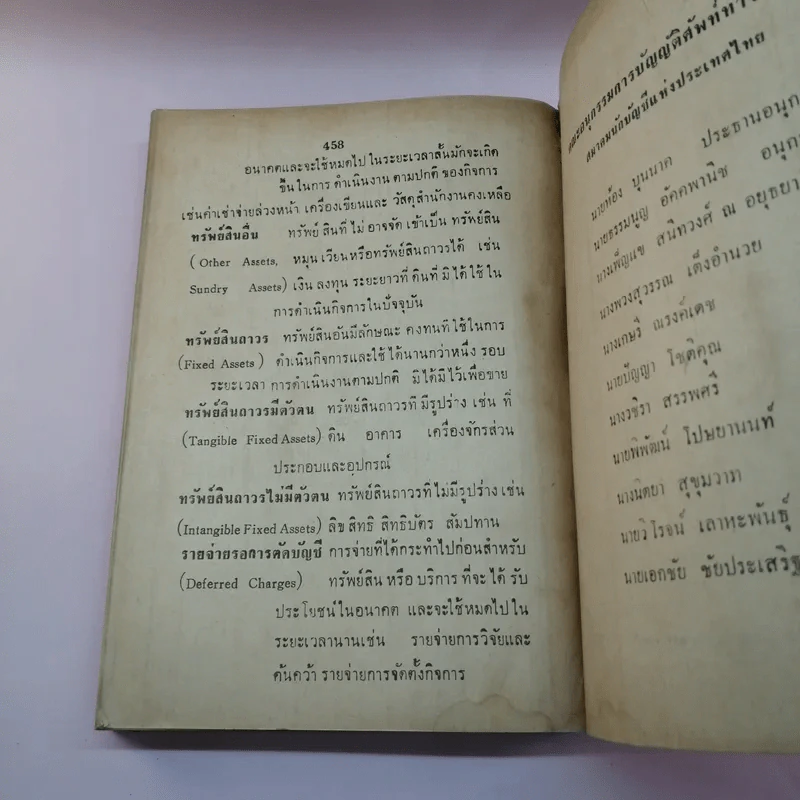 458
อนาคตและจะใช้หมดไป ในระยะเวลาสั้นมักจะเกิด
ขึ้น ในการ ดำเนินงาน ตามปกติ ของกิจการ
เช่นค่าเช่าจ่ายล่วงหน้า เครื่องเขียนและ วัสดุสำนักงานคงเหลือ
ทรัพย์สินอื่น ทรัพย์ สินที่ ไม่ อาจจัด เข้าเป็น ทรัพย์สิน
(Other Assets, หมุนเวียนหรือทรัพย์สินถาวรได้ เช่น
Sundry Assets) เงิน ลงทุน ระยะยาวที่ ดินที่ มิ ได้ ใช้ ใน
การดำเนินกิจการในปัจจุบัน
ทรัพย์สินถาวร ทรัพย์สินอันมีลักษณะ คงทนที่ ใช้ ในการ
(Fixed Assets) ดำเนินกิจการและใช้ ได้นานกว่าหนึ่ง รอบ
ระยะเวลา การดำเนินงานตามปกติ มิ ได้มี ไว้เพื่อขาย
ทรัพย์สินถาวรมีตัวตน ทรัพย์สินถาวรที่ มีรูปร่าง เช่น ที่
(Tangible Fixed Assets) ดิน อาคาร เครื่องจักรส่วน
ประกอบและอุปกรณ์
ทรัพย์สินถาวรไม่มีตัวตน ทรัพย์สินถาวรที่ไม่มีรูปร่าง เช่น
(Intangible Fixed Assets) ลิข สิทธิ สิทธิบัตร สัมปทาน
รายจ่ายรอการตัดบัญชี การจ่ายที่ได้กระทำไปก่อนสำหรับ
(Deferred Charges) ทรัพย์สิน หรือ บริการ ที่จะ ได้ รับ
ประโยชน์ในอนาคต และจะใช้หมดไป ใน
ระยะเวลานานเช่น รายจ่ายการวิจัยและ
ค้นคว้า รายจ่ายการจัดตั้งกิจการ
คณะอนุกรรมการบัญญัติศัพท์ทาง
สมาคมนักบัญชีแห่งประเทศไทย
นายห้อง บุนนาค ประธานอนุก
นายธรรมนูญ อัคคพานิช อนุก
นางเพ็ญแข สนิทวงศ์ ณ อยุธยา
นางพวงสุวรรณ เต็งอำนวย
นางเกษรี ณรงค์เดช
นายบัญญา โชติคุณ
นางวชิรา สรรพศรี
นายพิพัฒน์ โปษยานนท์
นางนิตยา สุขุมวาท
นายวิโรจน์ เลาหะพันธุ์
นายเอกชัย ชัยประเสริฐ